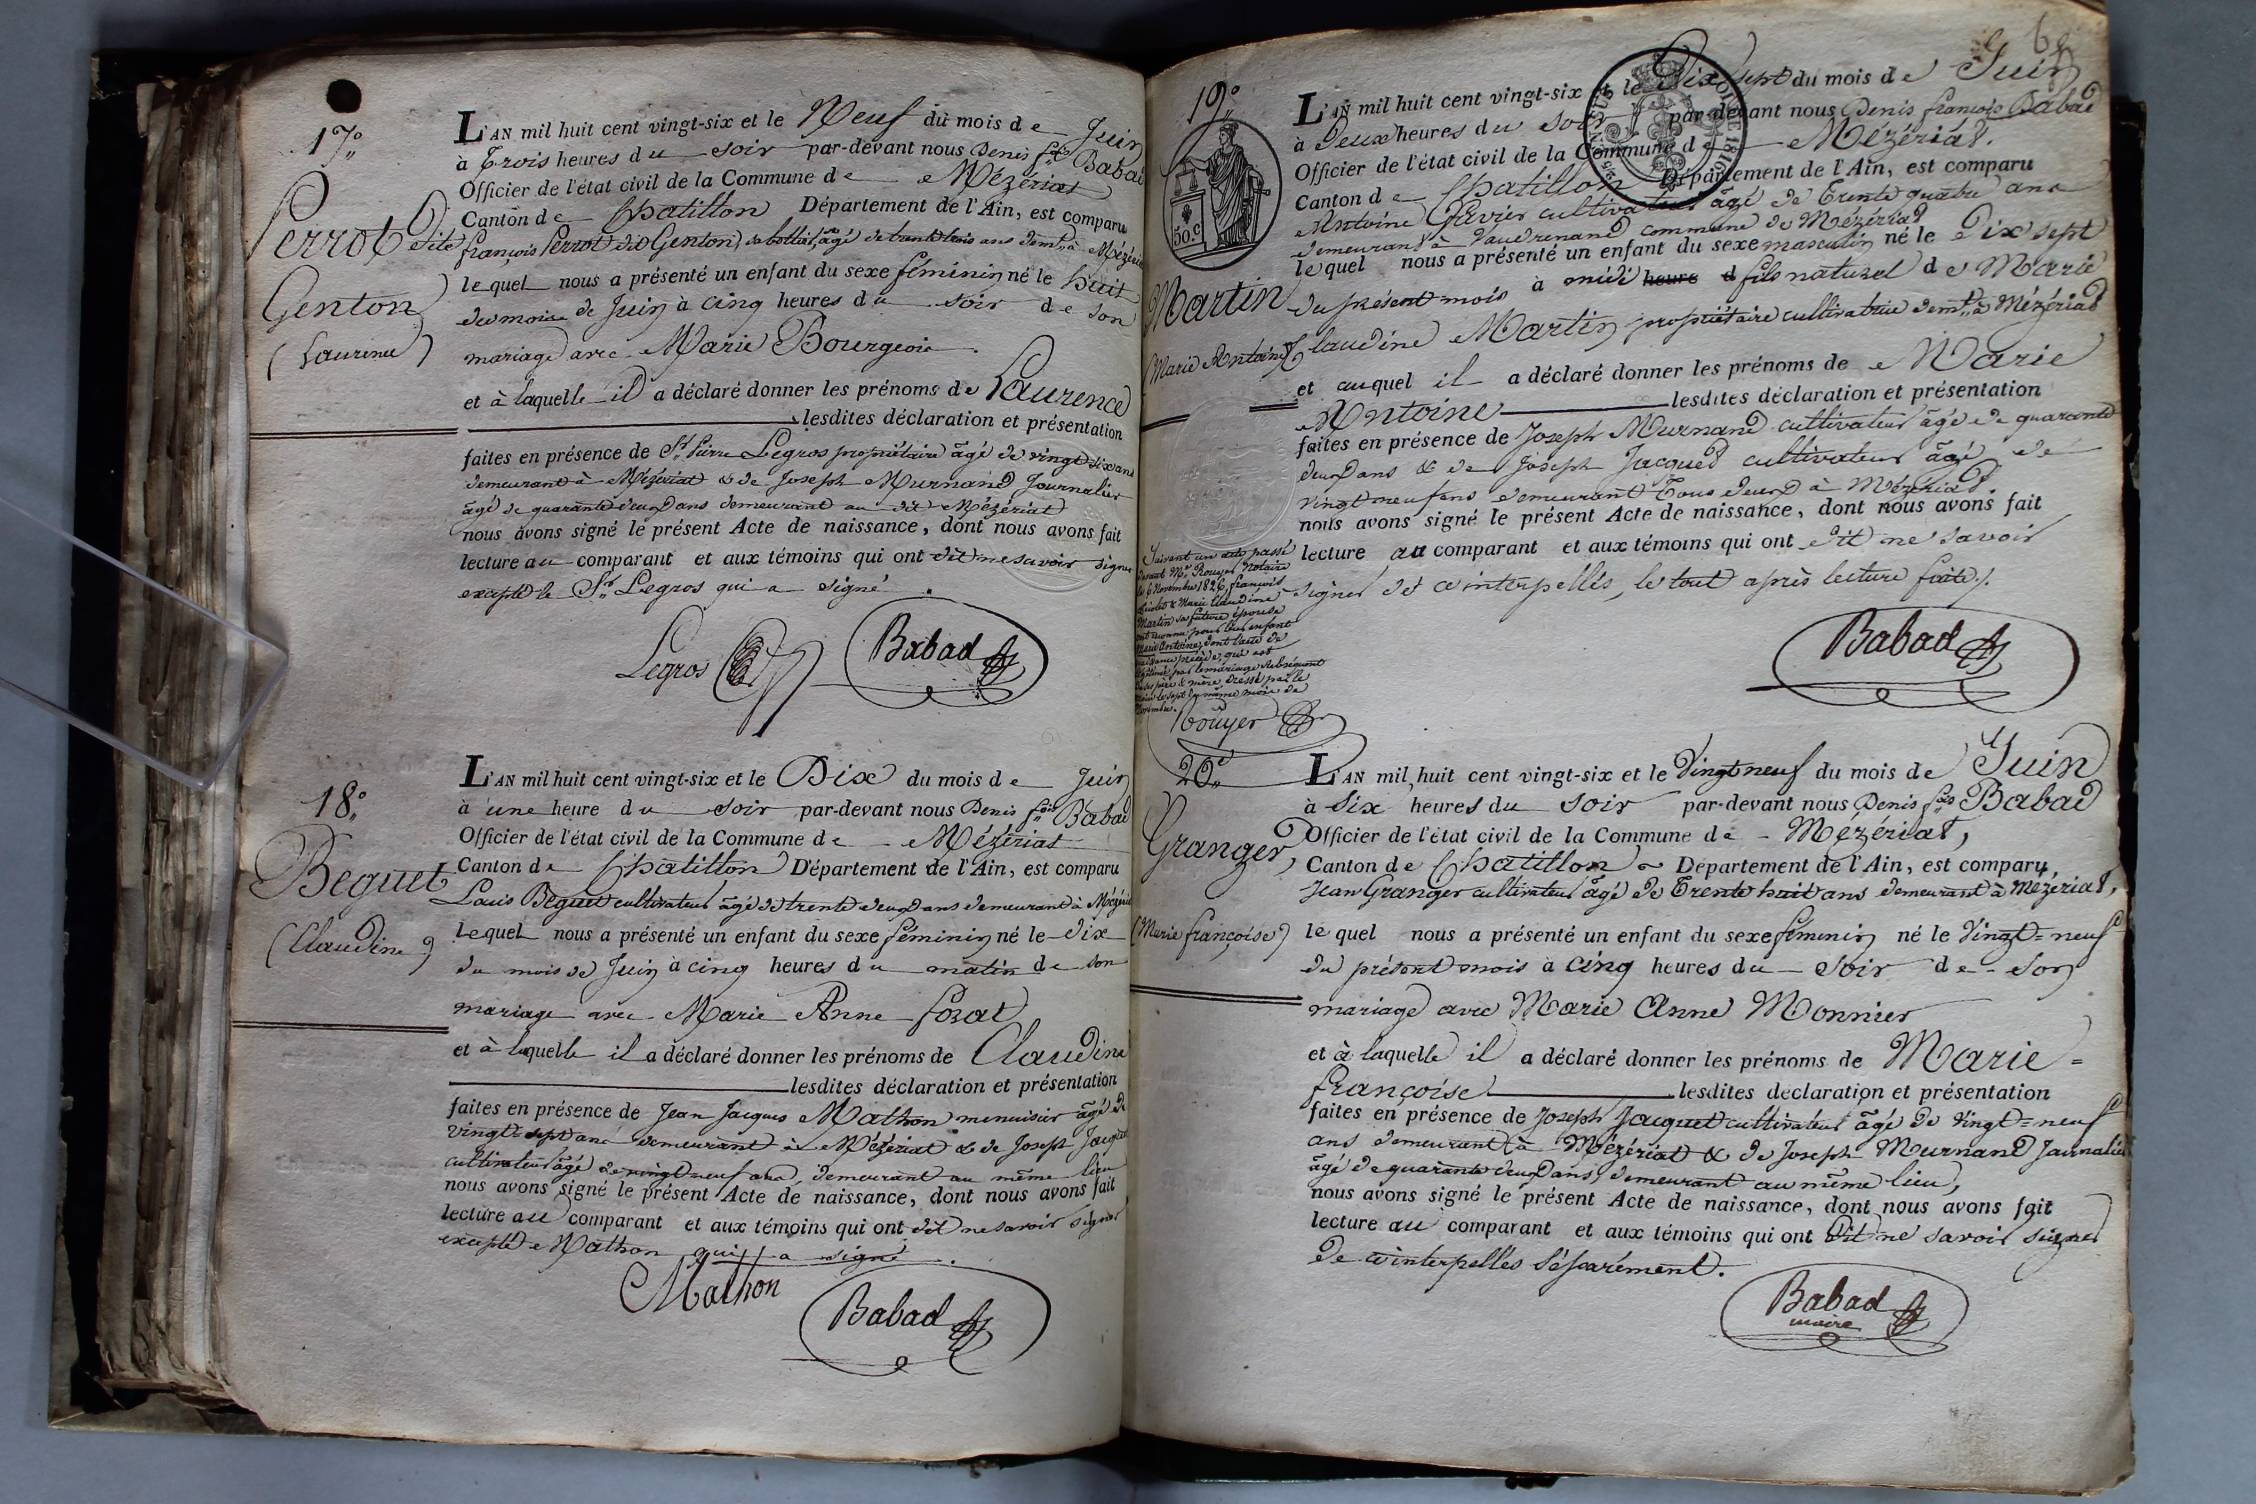 17°
Perrot dite
Genton
(Laurence)
L'AN mil huit cent vingt-six et le Neuf du mois de Juin
à Trois heures du soir par-devant nous Denis fois Babad
Officier de l'état civil de la Commune de Mézériat
Canton de Chatillon Département de l'Ain, est comparu
françois Perrot dit Genton, sabottier, âgé de trente trois ans demt à Mézériat
lequel nous a présenté un enfant du sexe féminin né le huit
du mois de Juin à cinq heures du soir de son
mariage avec Marie Bourgeois.
et à laquelle il a déclaré donner les prénoms de Laurence
lesdites déclaration et présentation
faites en présence de Sr Pierre Legros propriétaire âgé de vingt six ans
demeurant à Mézériat & de Joseph Murnand Journalier
âgé de quarante deux ans demeurant au dit Mézériat
nous avons signé le présent Acte de naissance, dont nous avons fait
lecture au comparant et aux témoins qui ont dit ne savoir signer
excepté le Sr Legros qui a signé
Legros Babad
18°
Beguet
(Claudine)
L'AN mil huit cent vingt-six et le Dix du mois de Juin
à une heure du soir par-devant nous Denis fois Babad
Officier de l'état civil de la Commune de Mézériat
Canton de Chatillon Département de l'Ain, est comparu
Louis Beguet cultivateur âgé de trente deux ans demeurant à Mézériat
lequel nous a présenté un enfant du sexe féminin né le dix
du mois de Juin à cinq heures du matin de son
mariage avec Marie Anne
et à laquelle il a déclaré donner les prénoms de Claudine
lesdites déclaration et présentation
faites en présence de Jean Jacques Mathon menuisier âgé de
vingt-sept ans demeurant à Mézériat & de Joseph Jacquet
cultivateur âgé de vingt neuf ans, demeurant au même lieu
nous avons signé le présent Acte de naissance, dont nous avons fait
lecture au comparant et aux témoins qui ont dit ne savoir signer
excepté Mathon qui a signé.
Mathon
Babad
19°
50.c
Martin
(Marie Antoine)
L'AN mil huit cent vingt-six et le Dix sept du mois de Juin
à Deux heures du soir par-devant nous Denis françois Babad
Officier de l'état civil de la Commune de Mézériat.
Canton de Chatillon Département de l'Ain, est comparu
Antoine Favier cultivateur âgé de Trente quatre ans
demeurant à Vaudrenand commune de Mézériat
lequel nous a présenté un enfant du sexe masculin né le Dix sept
du présent mois à midi heure d fils naturel de Marie
Claudine Martin propriétaire cultivatrice demt à Mézériat
et auquel il a déclaré donner les prénoms de Marie
Antoine lesdites déclaration et présentation
faites en présence de Joseph Murnand cultivateur âgé de quarante
deux ans & de Joseph Jacquet cultivateur âgé de
vingt neuf ans demeurant Tous deux à Mézériat.
nous avons signé le présent Acte de naissance, dont nous avons fait
lecture au comparant et aux témoins qui ont dit ne savoir
signer de ce interpellés, le tout après lecture faite.
Babad
Suivant un acte passé
devant Me Rouyer Notaire
le 6 Novembre 1826, françois
& Marie Claudine
Martin sa future épouse
ont reconnu pour leur enfant
Marie Antoine, dont l'acte de
naissance précède, qui est
légitimé par le mariage subséquent
de ses père & mère, dressé par le
maire le sept du même mois de
Novembre.
Rouyer
20°
Granger,
(Marie françoise)
L'AN mil huit cent vingt-six et le Vingt neuf du mois de Juin
à Six heures du soir par-devant nous Denis fois Babad
Officier de l'état civil de la Commune de Mézériat,
Canton de Chatillon Département de l'Ain, est comparu,
Jean Granger cultivateur âgé de Trente huit ans demeurant à Mézériat,
lequel nous a présenté un enfant du sexe féminin né le Vingt=neuf
du présent mois à cinq heures du soir de son
mariage avec Marie Anne Monnier
et à laquelle il a déclaré donner les prénoms de Marie=
françoise lesdites déclaration et présentation
faites en présence de Joseph Jacquet cultivateur âgé de vingt=neuf
ans demeurant à Mézériat & de Joseph Murnand Journalier
âgé de quarante deux ans, demeurant au même lieu,
nous avons signé le présent Acte de naissance, dont nous avons fait
lecture au comparant et aux témoins qui ont dit ne savoir signer
de ce interpellés séparément.
Babad
maire